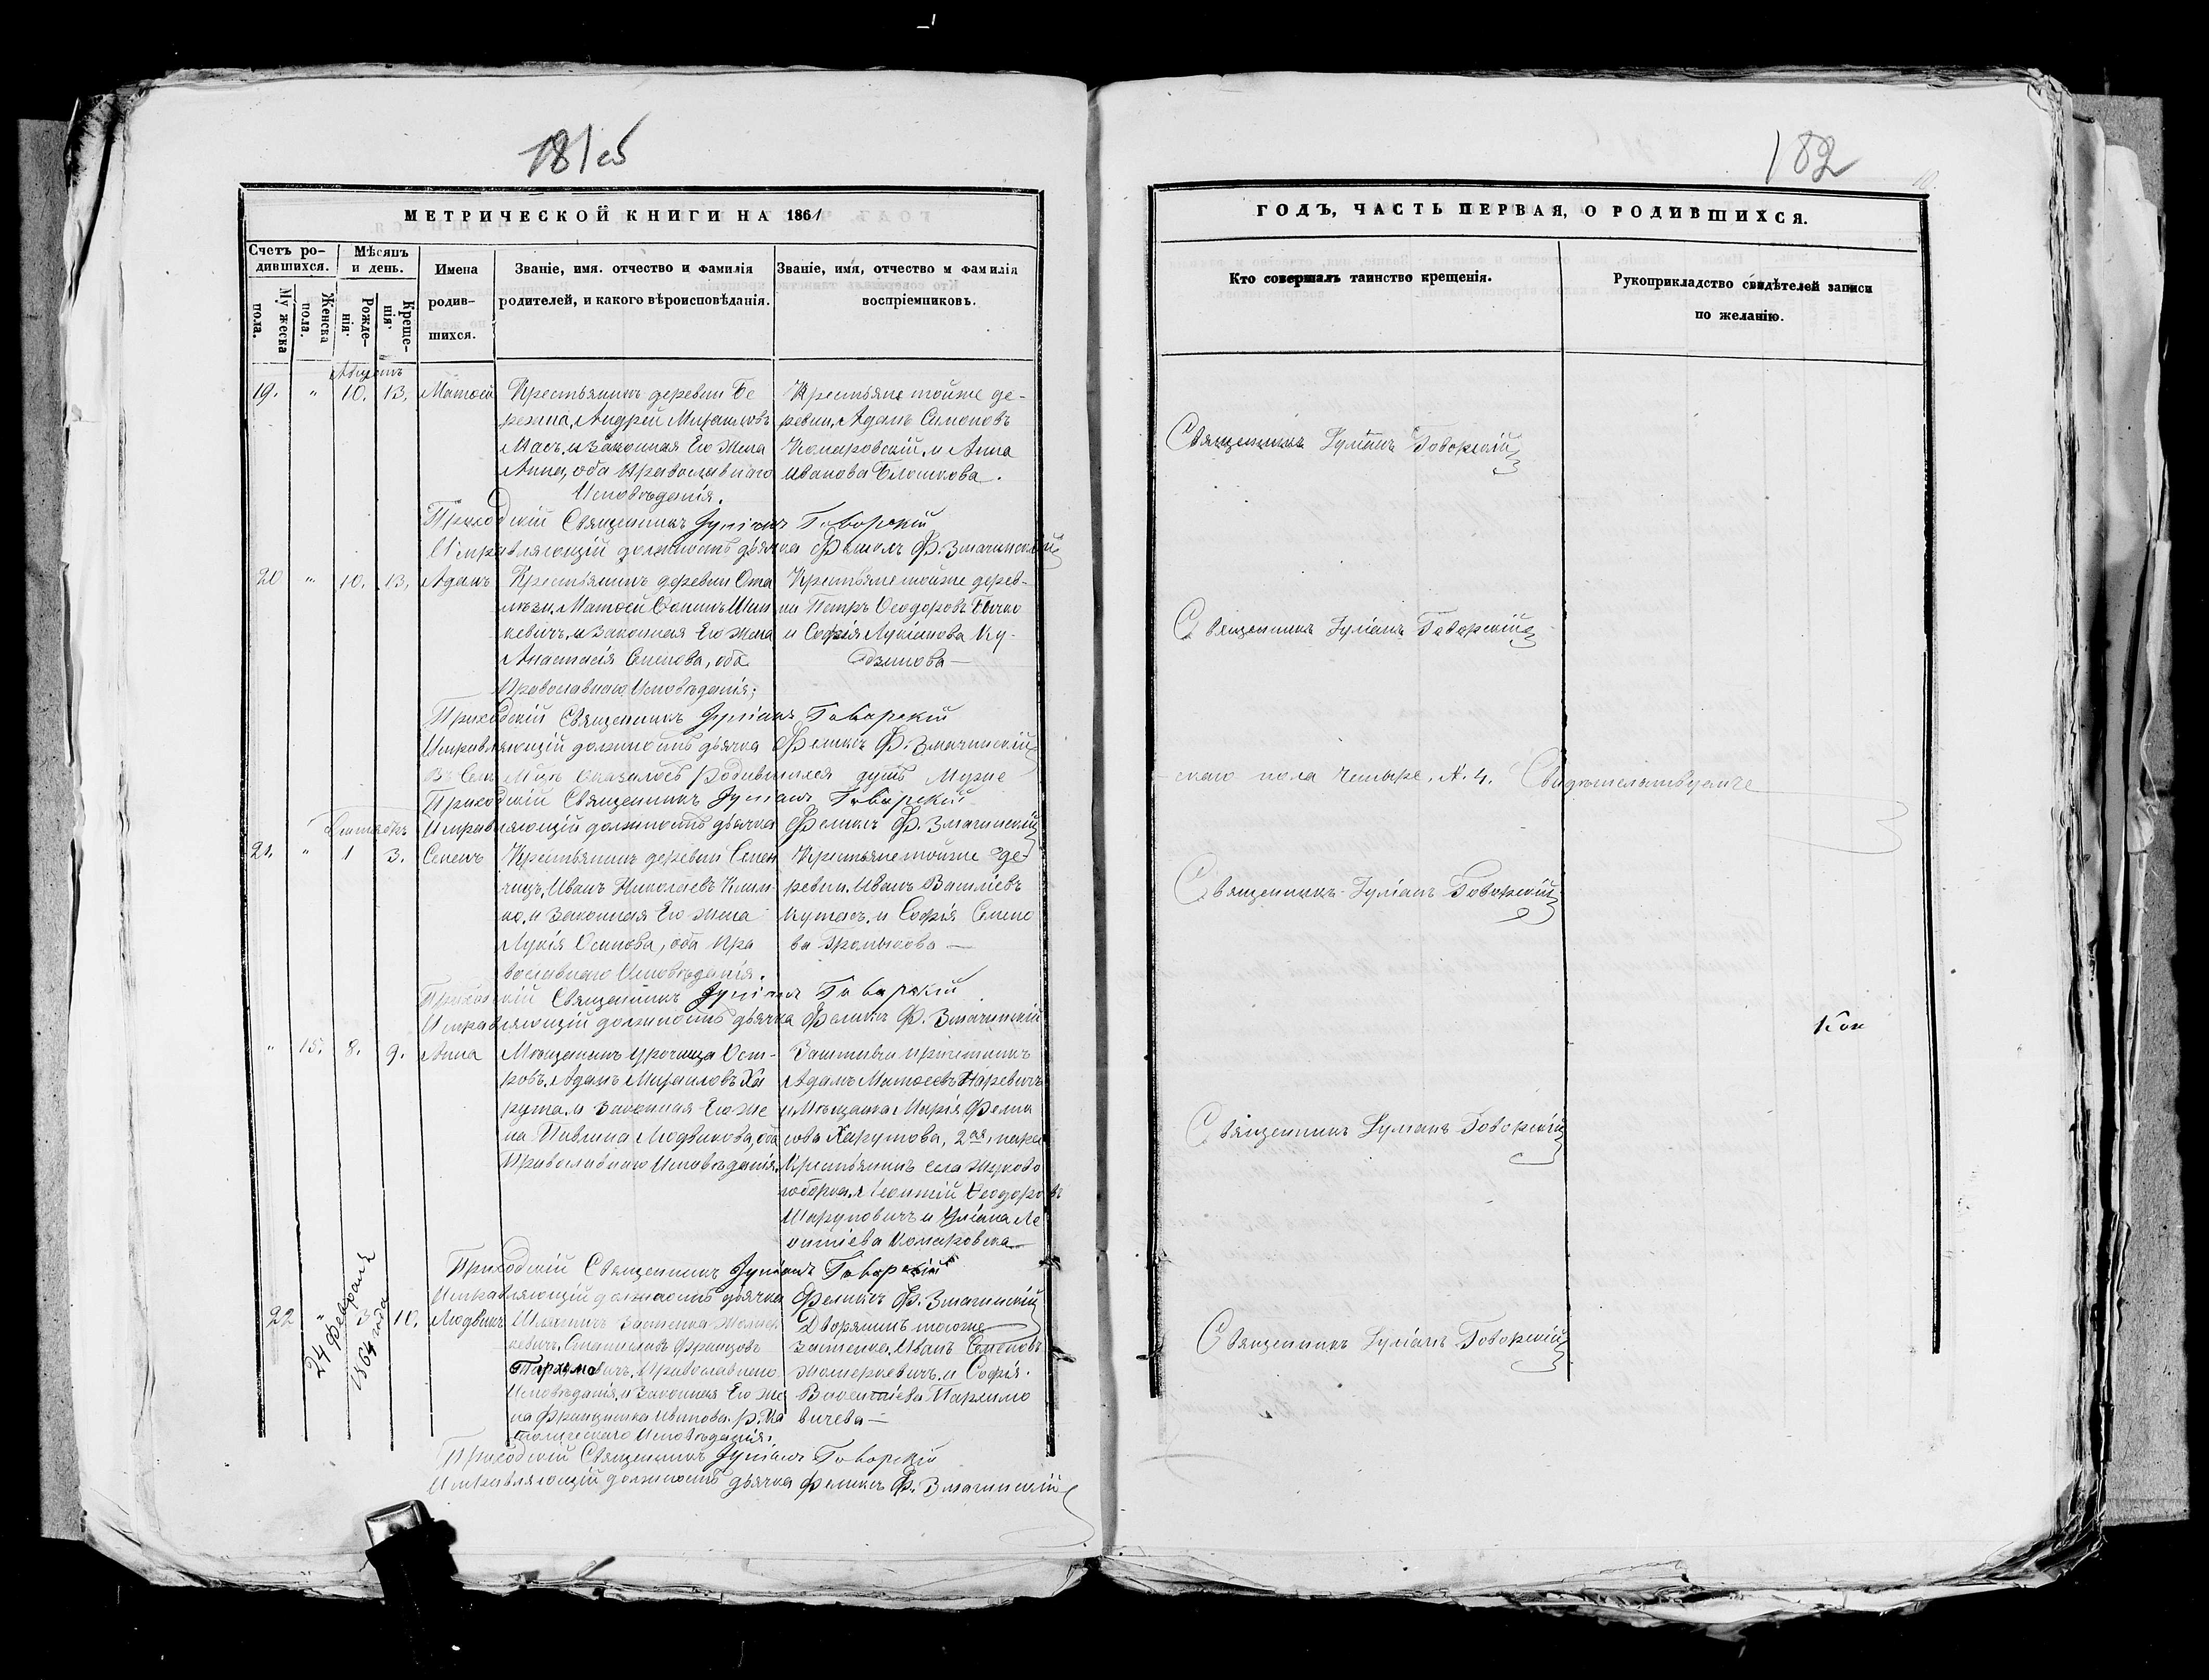 181 об
182
МЕТРИЧЕСКОЙ КНИГИ НА 1861
ГОДЪ, ЧАСТЬ ПЕРВАЯ, О РОДИВШИХСЯ.
Счетъ родившихся.
Мужеска пола.
Женска пола.
Мѣсяцъ и день.
Рожденія.
Крещенія.
Имена родившихся.
Званіе, имя. отчество и фамилія
родителей, и какого вѣроисповѣданія.
Званіе, имя, отчество и фамилія
воспріемниковъ.
Кто совершалъ таинство крещенія.
Рукоприкладство свидѣтелей записи
по желанію.
Августъ
19. " 10. 13. Матѳей
Крестьянинъ деревни Бе
режна, Андрей Михаиловъ
Мась, и Законная Его Жена
Анна, оба Православнаго
Исповѣданія.
Крестьяне тойже де-
ревни, Адамъ Симоновъ
Комаровскій, и Анна
Иванова Блошкова.
Священникъ Іуліанъ Говорскій
Приходскій Священникъ Іуліанъ Говорскій
Исправляющій должность дьячка Феликсъ Ф. Змачинскій
20 " 10. 13. Адамъ
Крестьянинъ деревни
Матѳей
и Законная Его Жена
Анастасія Семенова, оба
Православнаго Исповѣданія;
Крестьяне тойже дерев-
ни Петръ Ѳеодоровъ
и Софія Лукіанова Ку-
дзинова —
Священникъ Іуліанъ Говорскій
Приходскій Священникъ Іуліанъ Говорскій
Исправляющій должность дьячка Феликсъ Ф. Змачинскій
Въ Семъ М-цѣ оказалось родившихся душъ Муже
скаго пола Четыре. N. 4. Свидѣтельствуемъ
Приходскій Священникъ Іуліанъ Говорскій
Исправляющій должность дьячка Феликсъ Ф. Змачинскій
Сентябрь
21. " 1 3. Семенъ
Крестьянинъ деревни Семен
чицъ, Иванъ Николаевъ Клим-
ко, и Законная Его Жена
Лукія Осипова, оба Пра
вославнаго Исповѣданія.
Крестьяне тойже де-
ревни. Иванъ Василіевъ
Кутасъ, и Софія Семено
ва Громыкова —
Священникъ Іуліанъ Говорскій
Приходскій Священникъ Іуліанъ Говорскій
Исправляющій должность дьячка Феликсъ Ф. Змачинскій
" 15. 8. 9. Анна
Мѣщанинъ урочища Ост-
ровъ, Адамъ Михаиловъ Ха
рута, и Законная Его Же
на Павлина Людвикова, оба
Православнаго Исповѣданія.
Адамъ Матѳеевъ
и Мѣщанка Марія Фелик
сова Харутова, 2ая, пара
Крестьянинъ села Жуково
борка, Леонтій Ѳеодоровъ
Шаруповичъ и Уліана Ле
онтіева Комаровска
Священникъ Іуліанъ Говорскій
Приходскій Священникъ Іуліанъ Говорскій
Исправляющій должность дьячка Феликсъ Ф. Змачинскій
22 " 3 10. Людвикъ
24 Февраля
1864 года
Шляхтичъ Застенка Жомер
кевичъ, Станиславъ Францовъ
Пархимовичъ, Православнаго
Исповѣданія, и Законная Его Же
на Францишка Иванова. р. Ка
толическаго Исповѣданія.
Дворянинъ тогоже
Застенка, Иванъ Семеновъ
Жомеркевичъ, и Софія
Викентіева Пархимо
вичева —
Священникъ Іуліанъ Говорскій
Приходскій Священникъ Іуліанъ Говорскій
Исправляющій должность дьячка Феликсъ Ф. Змачинскій